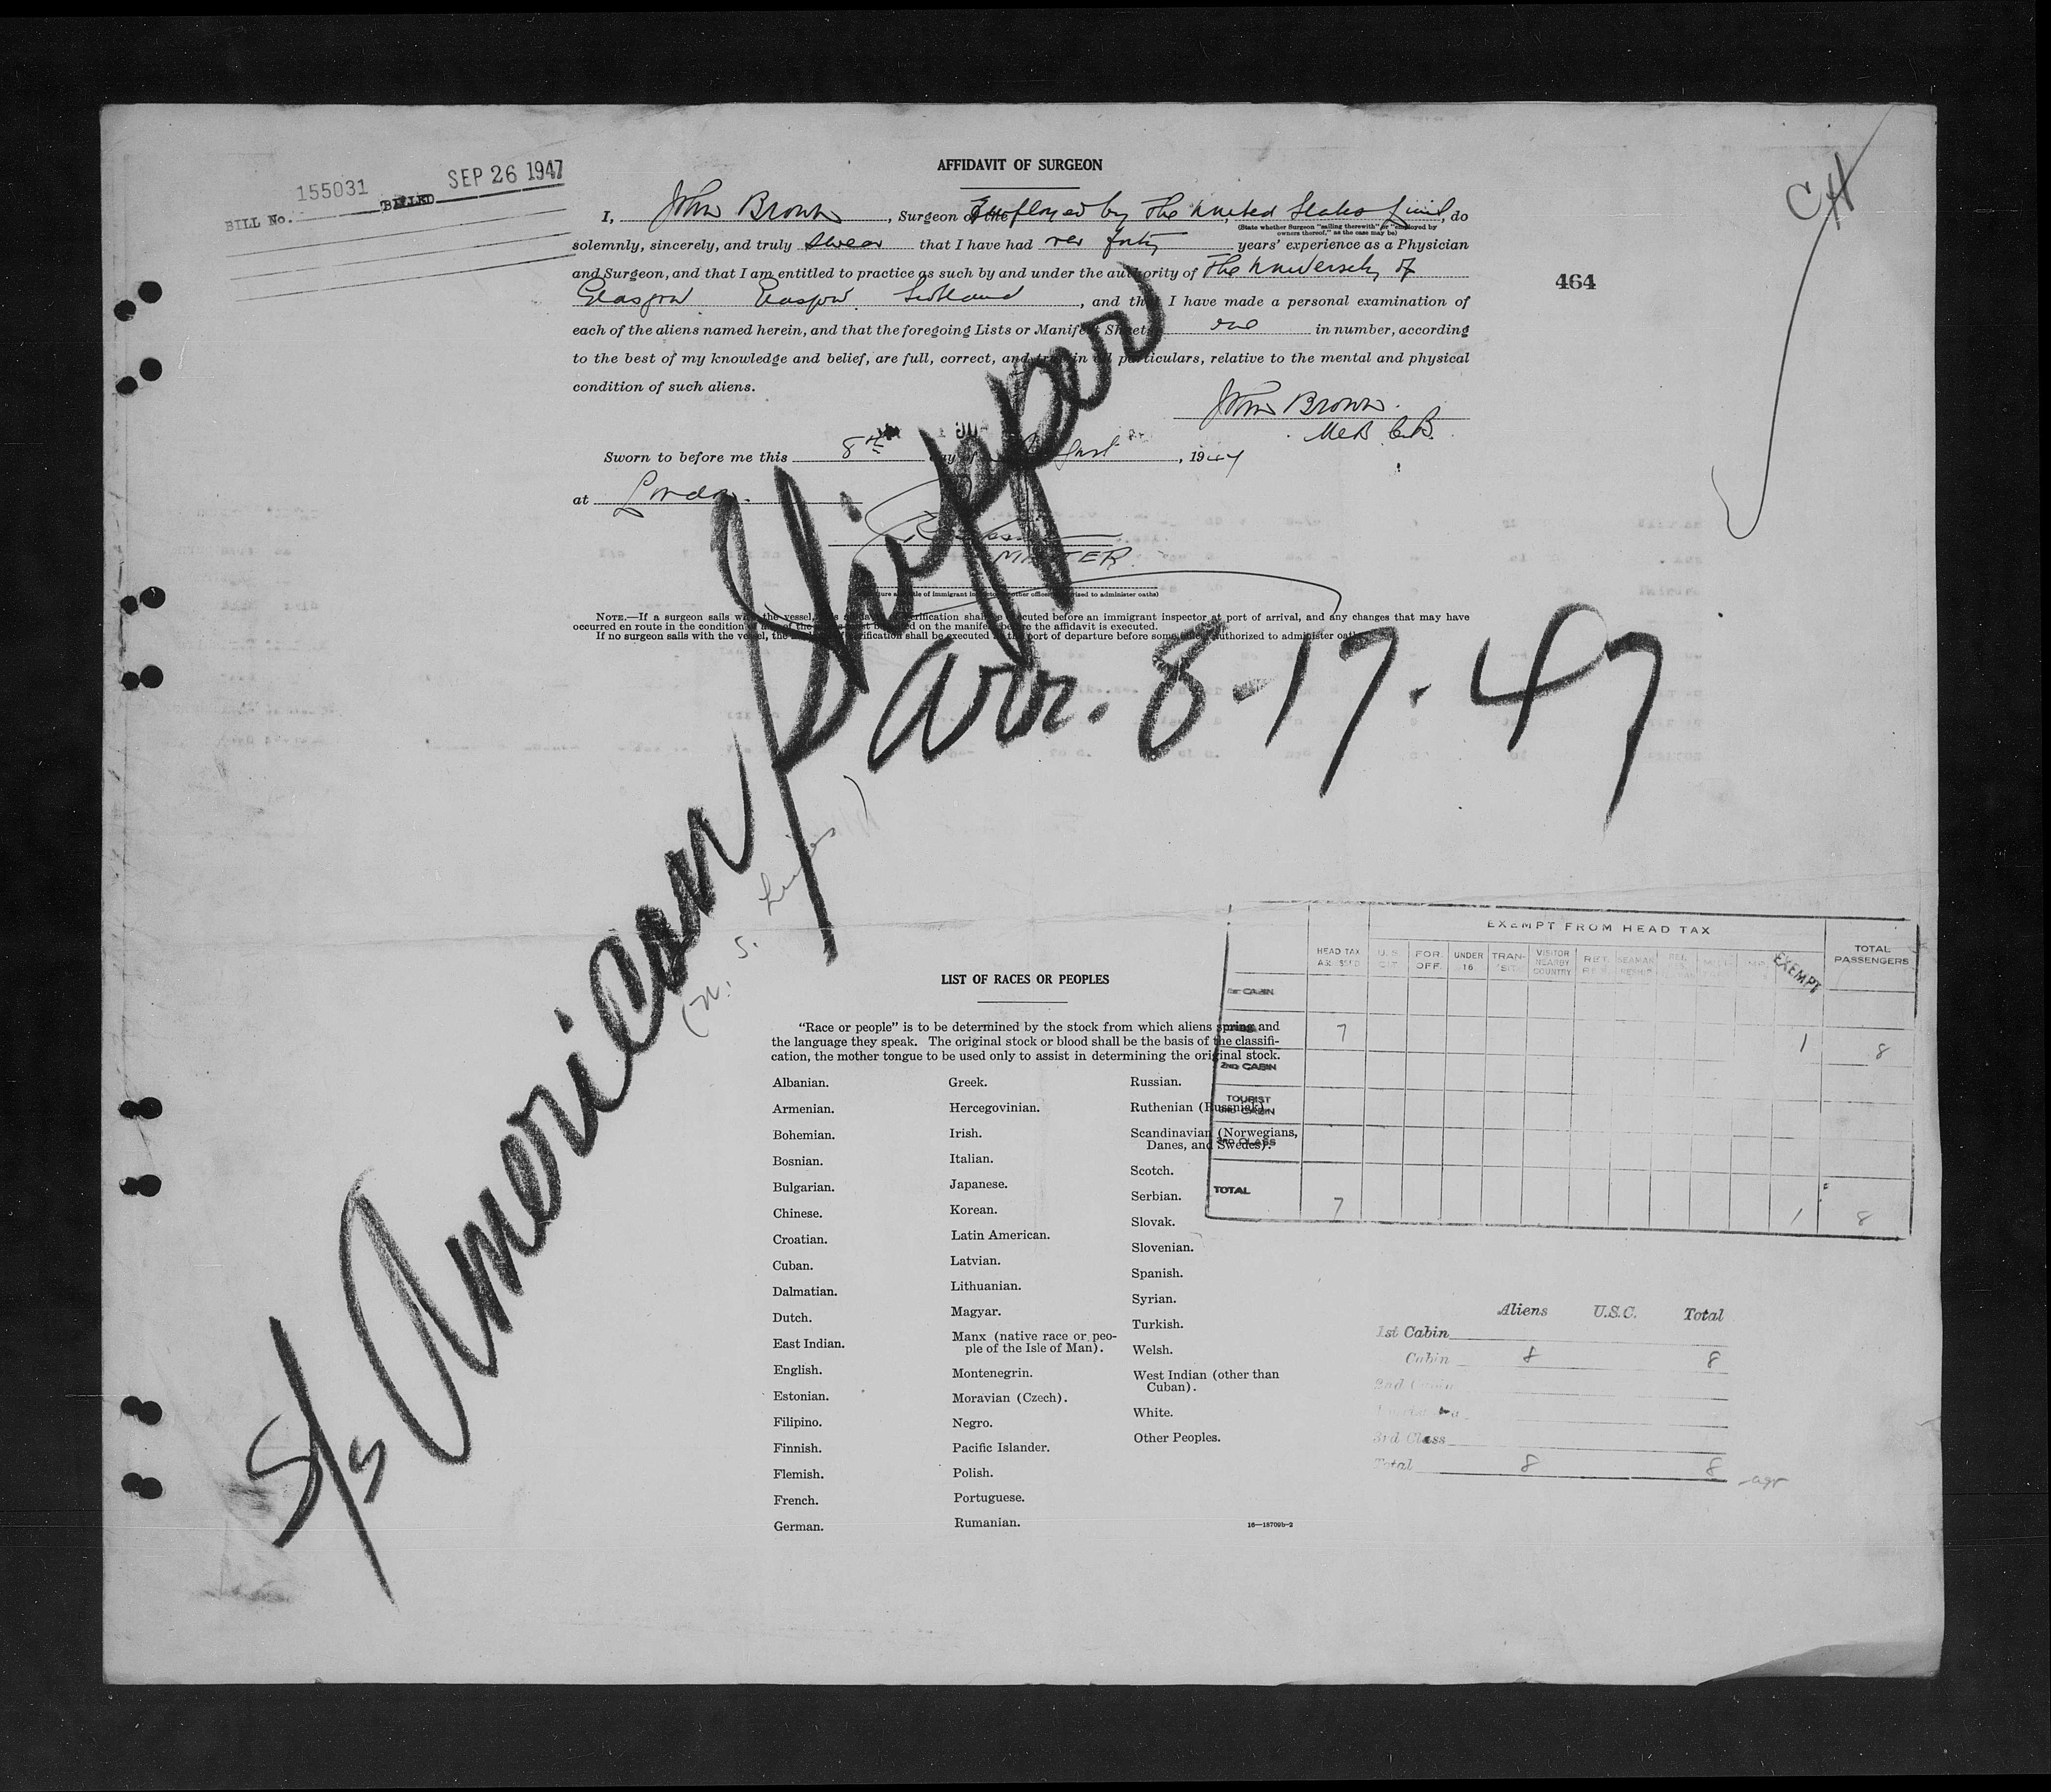 BILL No. 155031 BILLED SEP 26 1947
CH
AFFIDAVIT OF SURGEON
I, John Brown, Surgeon Employed by The United States Lines, do
(State whether Surgeon "sailing therewith" or "employed by
owners thereof," as the case may be)
solemnly, sincerely, and truly swear that I have had over forty years' experience as a Physician
and Surgeon, and that I am entitled to practice as such by and under the authority of The University of
Glasgow Glasgow Scotland, and that I have made a personal examination of
464
each of the aliens named herein, and that the foregoing Lists or Manifest Sheets, one in number, according
to the best of my knowledge and belief, are full, correct, and true in all particulars, relative to the mental and physical
condition of such aliens.
John Brown.
M.B. Ch.B.
Sworn to before me this 8th day of August, 1947
at London.
MASTER
(Signature and title of immigrant inspector or other officer authorized to administer oaths)
NOTE.—If a surgeon sails with the vessel, this affidavit verification shall be executed before an immigrant inspector at port of arrival, and any changes that may have
occurred en route in the condition of any of the aliens must be noted on the manifest before the affidavit is executed.
If no surgeon sails with the vessel, the verification shall be executed at the port of departure before some officer authorized to administer oaths.
S/S American Shipper
arr. 8-17-47
(U. S. Lines)
LIST OF RACES OR PEOPLES
"Race or people" is to be determined by the stock from which aliens spring and
the language they speak. The original stock or blood shall be the basis of the classifi-
cation, the mother tongue to be used only to assist in determining the original stock.
Albanian.
Armenian.
Bohemian.
Bosnian.
Bulgarian.
Chinese.
Croatian.
Cuban.
Dalmatian.
Dutch.
East Indian.
English.
Estonian.
Filipino.
Finnish.
Flemish.
French.
German.
Greek.
Hercegovinian.
Irish.
Italian.
Japanese.
Korean.
Latin American.
Latvian.
Lithuanian.
Magyar.
Manx (native race or peo-
ple of the Isle of Man).
Montenegrin.
Moravian (Czech).
Negro.
Pacific Islander.
Polish.
Portuguese.
Rumanian.
Russian.
Ruthenian (Russniak).
Scandinavian (Norwegians,
Danes, and Swedes).
Scotch.
Serbian.
Slovak.
Slovenian.
Spanish.
Syrian.
Turkish.
Welsh.
West Indian (other than
Cuban).
White.
Other Peoples.
16—18709b-2
EXEMPT FROM HEAD TAX
HEAD TAX ASSESSED U.S. CIT. FOR. OFF. UNDER 16 TRANSIT VISITOR NEARBY COUNTRY EXEMPT TOTAL PASSENGERS
1st CABIN
7 1 8
2ND CABIN
TOURIST
3RD CABIN
3RD CLASS
TOTAL 7 1 8
Aliens U.S.C. Total
1st Cabin
Cabin 8 8
2nd Cabin
3rd Class
Total 8 8